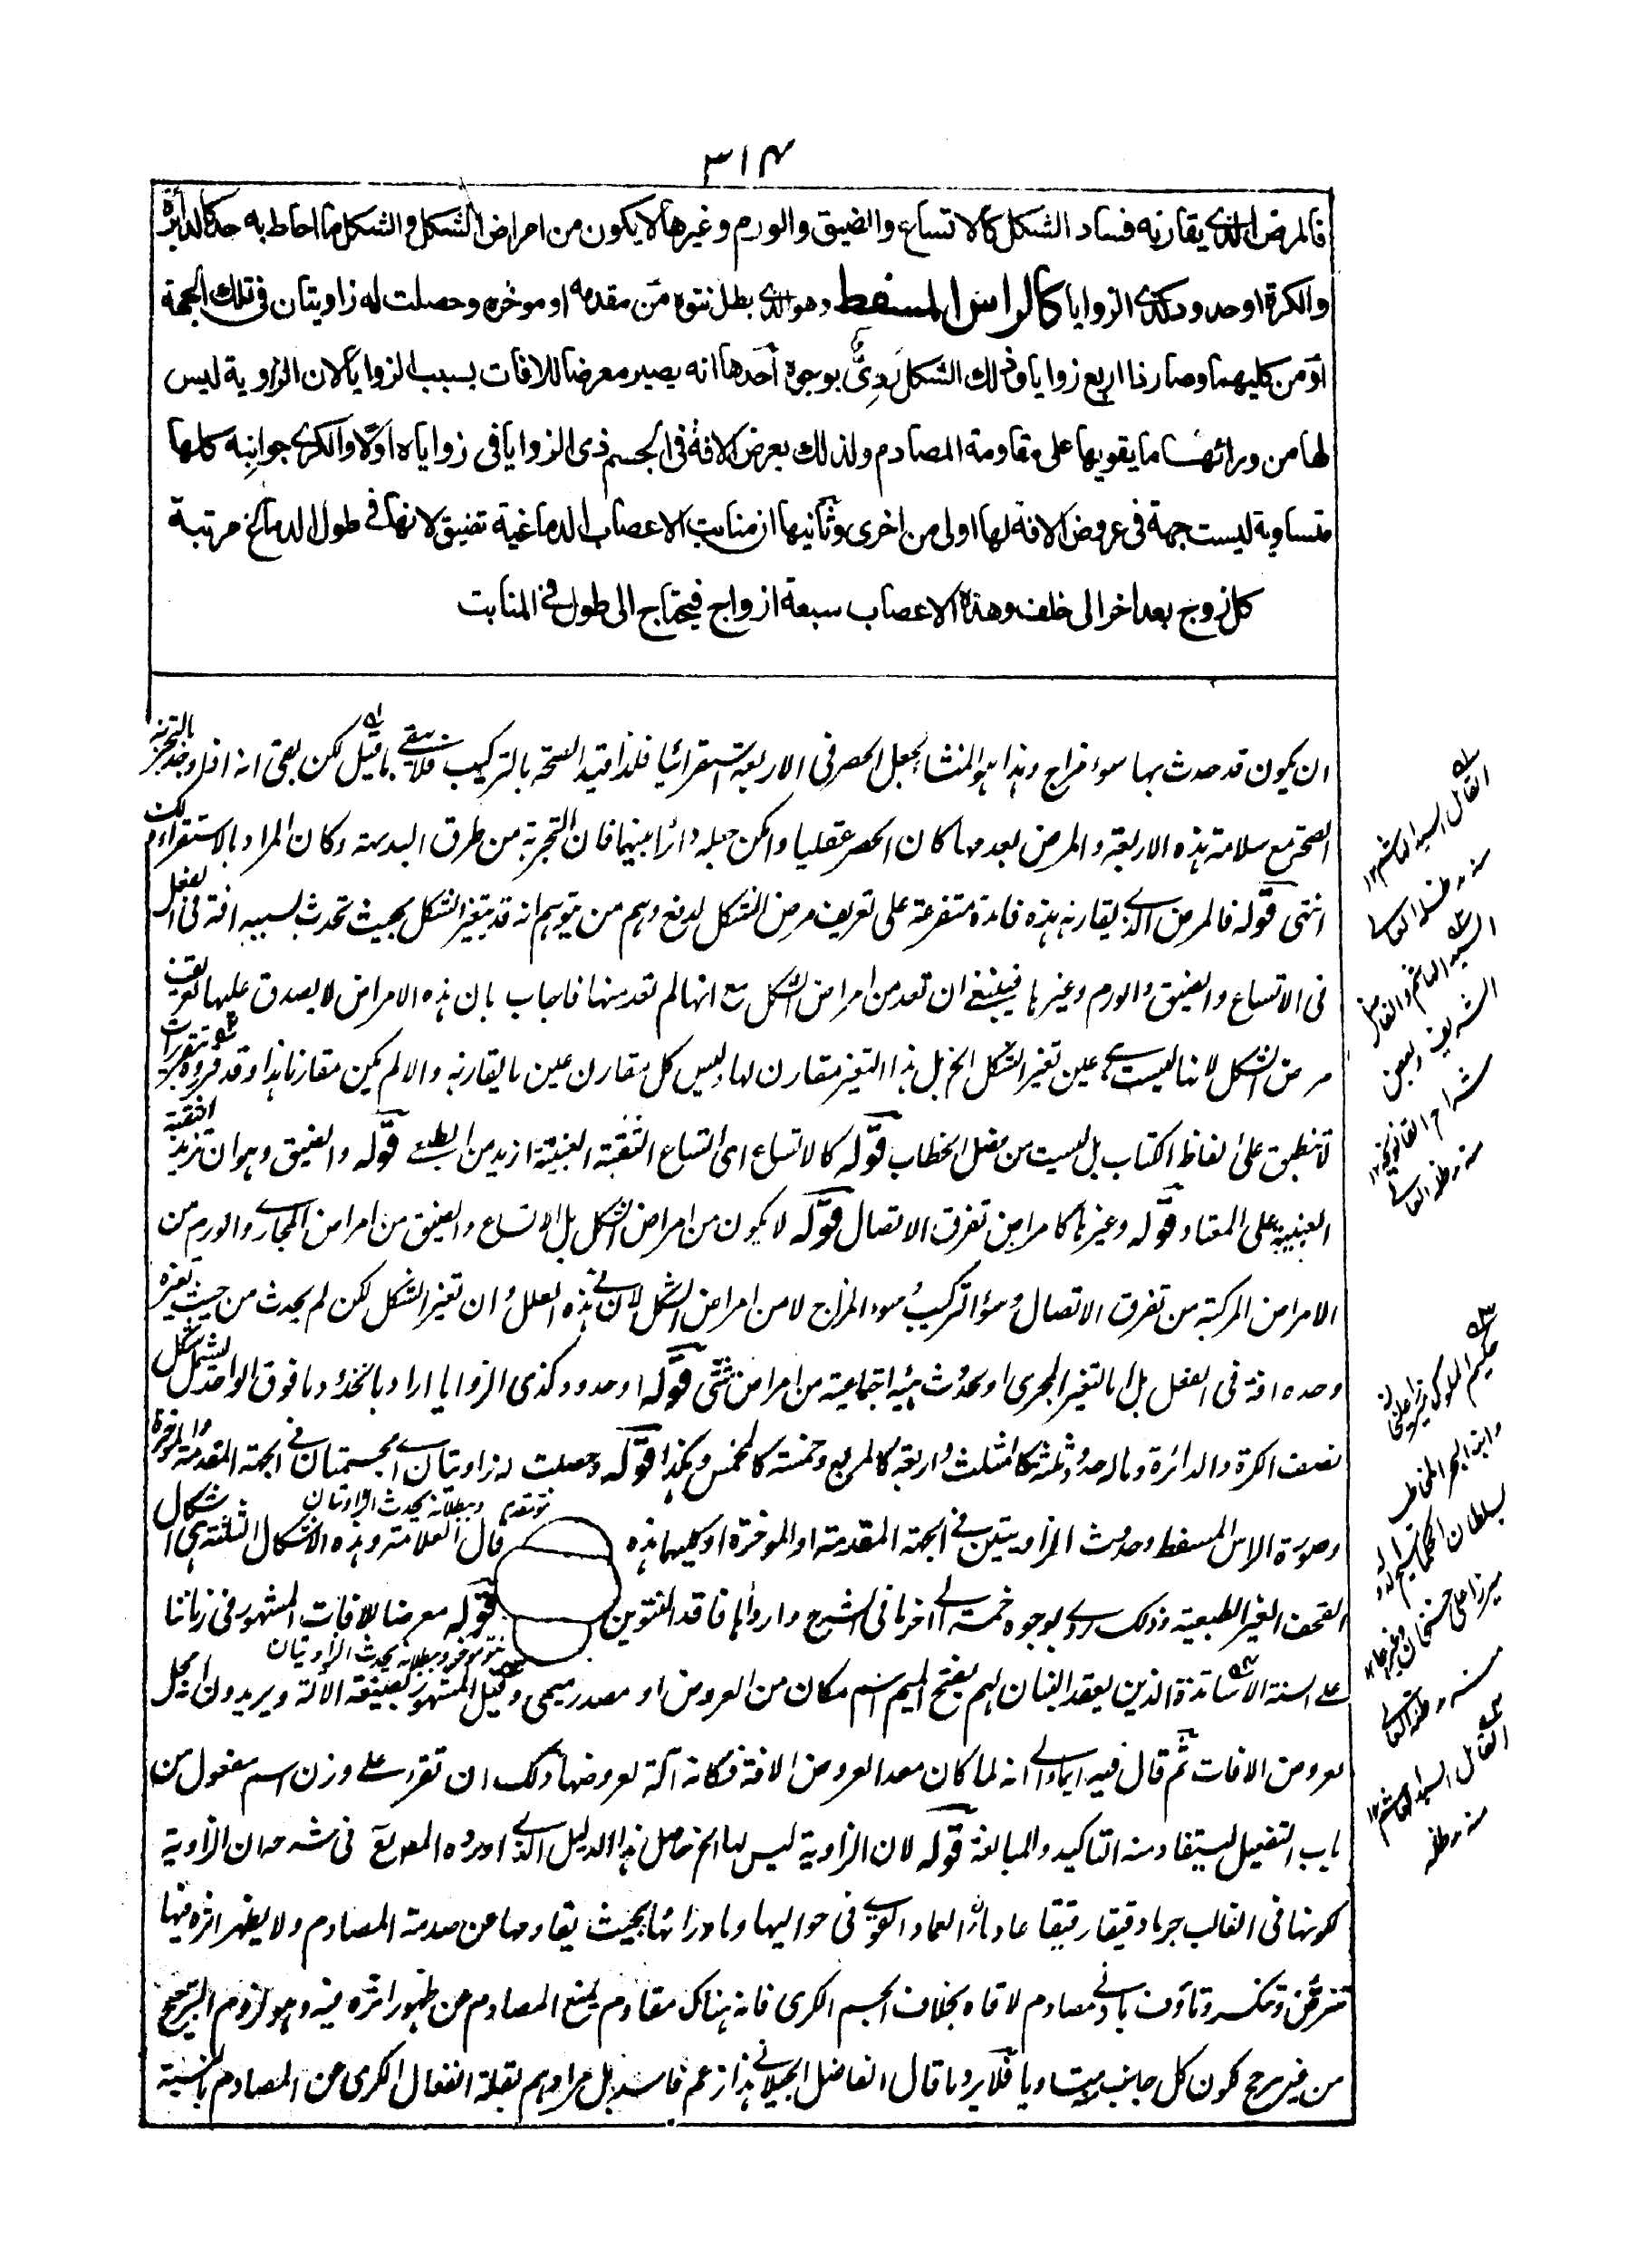 ٣١٤
فالمرض الذى يقارنه فساد الشكل كالاتساع والضيق والورم وغيرها لا يكون من امراض الشكل والشكل ما احاط به حد كالدائرة
والكرة او حدود كذى الزوايا كالراس المسفط وهو الذى بطل نتوه من مقدمه او موخره وحصلت له زاويتان فى تلك الجهة
او من كليهما وصار ذا اربع زوايا وذلك الشكل ردىّ بوجوه احدها انه يصير معرضا للافات بسبب الزوايا لان الزاوية ليس
لها من ورائها ما يقويها على مقاومة المصادم ولذلك يعرض الافة فى الجسم ذى الزوايا فى زواياه اوّلا والكرى جوانبه كلها
متساوية ليست جهة فى عروض الافة لها اولى من اخرى وثانيها ان منابت الاعصاب الدماغية تضيق لانها فى طول الدماغ مرتبة
كل زوج بعد اخر الى خلف وهذه الاعصاب سبعة ازواج فيحتاج الى طول فى المنابت
ان يكون قد حدث بها سوء مزاج وهذا هو المنشا لجعل الحصر فى الاربعة استقرائيا فلذا قيد الصحة بالتركيب فلا يبقى ما قيل لكن بقى انه اذا وجد بالتجربة
الصحة مع سلامة هذه الاربعة والمرض بعدمها كان الحصر عقليا وامكن جعله دائرا بينهما فان التجربة من طرق البديهة وكان المراد بالاستقراء ذلك
انتهى قوله فالمرض الذى يقارنه هذه فائدة متفرعة على تعريف مرض الشكل لدفع وهم من يتوهم انه قد يتغير الشكل بحيث تحدث بسببه افة فى الفعل
فى الاتساع والضيق والورم وغيرها فينبغى ان تعد من امراض الشكل مع انها لم تعد منها فاجاب بان هذه الامراض لا يصدق عليها تعريف
مرض الشكل لانها ليست هى عين تغير الشكل الخ بل هذا التغير مقارن لها وليس كل مقارن عين ما يقارنه والا لم يكن مقارنا هذا وقد قرروه بتقريرات
لا تنطبق على الفاظ الكتاب بل ليست من فصل الخطاب قوله كالاتساع اى اتساع الثقبة العنبية ازيد من الطبعى قوله والضيق وهو ان تزيد الثقبة
العنبية على المعتاد قوله وغيرها كامراض تفرق الاتصال قوله لا يكون من امراض الشكل بل الاتساع والضيق من امراض المجارى والورم من
الامراض المركبة من تفرق الاتصال وسوء التركيب وسوء المزاج لا من امراض الشكل لان فى هذه العلل وان تغير الشكل لكن لم يحدث من حيث تغيره
وحده افة فى الفعل بل اما لتغير المجرى او لحدوث هيئة اجتماعية من امراض شتى قوله او حدود كذى الزوايا اراد بالحدود ما فوق الواحد ليشمل شكل
نصف الكرة والدائرة وما له حدود ثلثة كالمثلث واربعة كالمربع وخمسة كالمخمس وهكذا قوله وحصلت له زاويتان اى مجسمتان فى الجهة المقدمة والموخرة
وصورة الراس المسفط وحدوث الزاويتين فى الجهة المقدمة او الموخرة او كليهما هذه
نتو مقدم وببطلانه يحدث الزاويتان
قال العلامة وهذه الاشكال الثلثة هى اشكال
القحف الغير الطبعية وذلك ردى لوجوه خمسة اخرها فى الشرح وارداها فاقد النتوين
قوله معرضا للافات المشهور فى زماننا
نتو موخر وببطلانه يحدث الزاويتان
على السنة الاساتذة الذين يعقد البنان لهم بفتح الميم اسم مكان من العروض او مصدر ميمى وقيل المشهور بصيغة الالة ويريدون محل
عروض الافات ثم قال فيه ايماء الى انه لما كان معدا لعروض الافة فكانه آلة لعروضها ولك ان تقرء على وزن اسم مفعول من
باب التفعيل ليستفاد منه التاكيد والمبالغة قوله لان الزاوية ليس لها الخ حاصل هذا الدليل الذى اورده المصنع فى شرحه ان الزاوية
لكونها فى الغالب جرما دقيقا رقيقا عادما للعماد القوى فى حواليها وما ورائها بحيث يقاومها عن صدمة المصادم ولا يظهر اثره فيها
تترضض وتنكسر وتاوف بادنى مصادم لاقاه بخلاف الجسم الكرى فانه هناك مقاوم يمنع المصادم عن ظهور اثره فيه وهو لزوم الترجيح
من غير مرجح لكون كل جانب مساويا فلا يرد ما قال الفاضل الجيلانى هذا زعم فاسد بل مرادهم بقلة انفعال الكرى عن المصادم بالنسبة
القائل السيد الهاشم ١٢
منه مد ظله العالى
السيد الهاشم والفاضل
الشريف وبعض
شراح القانونچه ١٢
منه مد ظله العالى
حكيم الملوك
وابنه البحر المخاطب
بسلطان الحكماء
ميرزا على حسن خان
منه مد ظله العالى
القائل السيد الهاشم ١٢
منه مد ظله